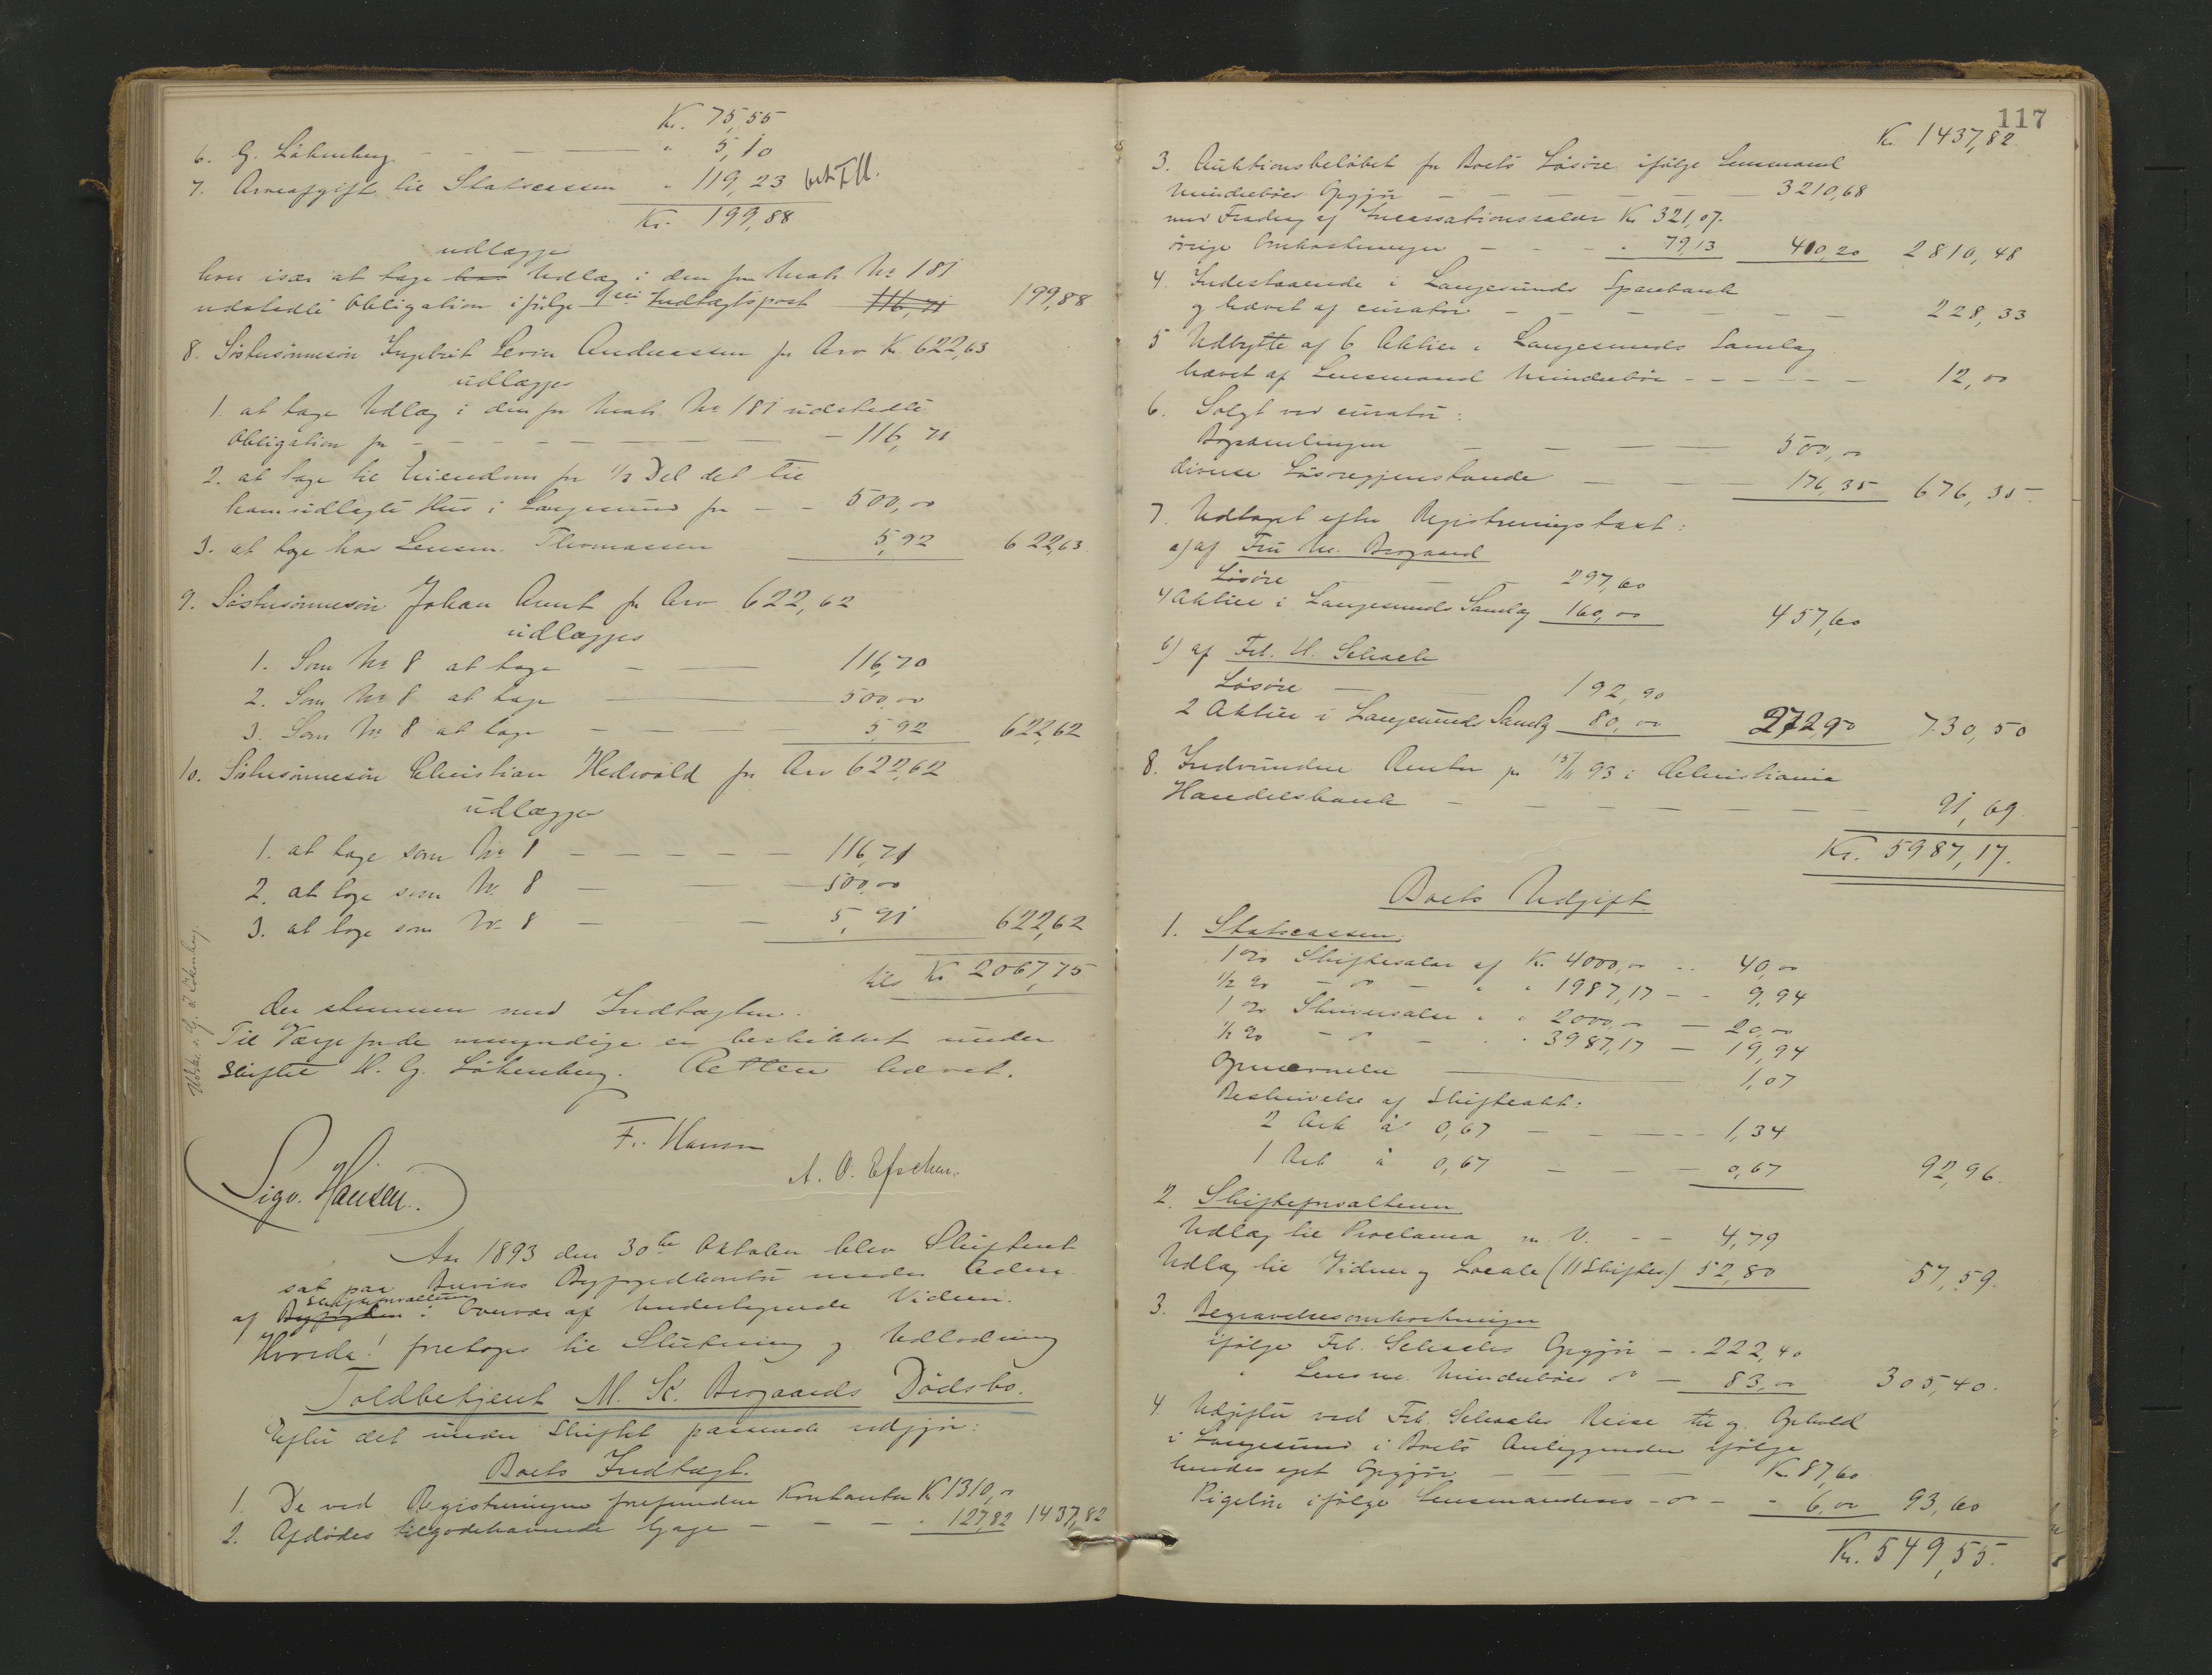 Kr. 75,55
6. G. Lökenberg — — — " 5,10
7. Arveafgift til Statscassen " 119,23
Kr. 199,88
udlægge
hver især at tage Udlæg i den for Matr. No 181
udstedte Obligation ifølge Indtægtspost 116,71 199,88
8. Søstersønnesøn Ingebrit Levin Andreassen for Arv Kr. 622,63
udlægges
1. at tage Udlæg i den for Matr. No 181 udstedte
Obligation for — — — — — 116,71
2. at tage til Eiendom for 1/3 Del det til
ham udlagte Hus i Langesund for — — 500,00
3. at tage hos Lensm. Thomassen 5,92 622,63
9. Søstersønnesøn Johan Arent for Arv 622,62
udlægges
1. Som No 8 at tage — — 116,70
2. Som No 8 at tage — 500,00
3. Som No 8 at tage — — — 5,92 622,62
10. Søstersønnesøn Christian Hedevald for Arv 622,62
udlægges
1. at tage som No 8 — — — — 116,71
2. at tage som No 8 — — 500,00
3. at tage som No 8 — — 5,91 622,62
tils Kr 2067,75
der stemmer med Indtægten.
Til Værge for de umyndige er beskikket under
Skiftet H. G. Lökenberg. Retten hævet.
Fr. Hansen
Sigv. Hansen.
A. O.
Aar 1893 den 30te Oktober blev Skifteret
sat paa Breviks Byfogedkontor under Ledn.
Skifteforvalteren
af Byfogden i Overvær af Undertegnede Vidner.
Hvorda! foretoges til Slutning og Udlodning
Toldbetjent M. K. Brogaards Dødsbo.
Efter det under Skiftet passerede udgjør:
Boets Indtægt.
1. De ved Registreringen forefundne Kontanter Kr 1310,00
2. Afdødes tilgodehavende Gage — — — " 127,82 1437,82
117
Kr. 1437,82.
3. Auktionsbeløbet for Boets Løsøre ifølge Lensmand
Mindrebøes Opgjør — — — — 3210,68
med Fradrag af Incassationssalær Kr 321,07.
øvrige Omkostninger — — — " 79,13 400,20 2810,48
4. Indestaaende i Langesunds Sparebank
og hævet af curator — — — — — — 228,33
5 Udbytte af 6 Aktier i Langesunds Samlag
hævet af Lensmand Mindrebøe — — — — — 12,00
6. Solgt ved curator:
Bogsamlingen — — — — 500,00
diverse Løsøregjenstande — — — 176,35 676,35
7. Udtaget efter Registreringstaxt:
a) af Fru M. Brogaard
Løsøre — — 297,60
4 Aktier i Langesunds Samlag 160,00 457,60
b) af Frk. H. Schack
Løsøre — — 192,90
2 Aktier i Langesunds Samlag 80,00 272,90 730,50
8. Indvundne Renter pr 15/11 93 i Christiania
Handelsbank — — — — — — — 91,69.
Kr. 5987,17.
Boets Udgift.
1. Statscassen.
1 % Skiftesalær af Kr. 4000,00 — 40,00
1/2 % — " — " " 1987,17 — 9,94
1 % Skriversalær " " 2000,00 — 20,00
1/2 % — " — " 3987,17 — 19,94
Opnævnelse — 1,07
Beskrivelse af Skifteakt:
2 Ark à 0,67 — — — 1,34
1 Ark à 0,67 — — — 0,67 92,96.
2. Skifteforvalteren
Udlæg til Proclama m. V. — — 4,79
Udlæg til Vidner og Locale (11 Skifter) 52,80 57,59.
3. Begravelsesomkostninger
ifølge Frk. Schacks Opgjør — " 222,40
" Lensm. Mindrebøes " — 83,00 305,40.
4 Udgifter ved Frk. Schacks Reise til og Ophold
i Langesund i Boets Anliggender ifølge
hendes eget Opgjør — — — — Kr. 87,60
Pigeløn ifølge Lensmandens — " — " 6,00 93,60
Kr. 549,55.